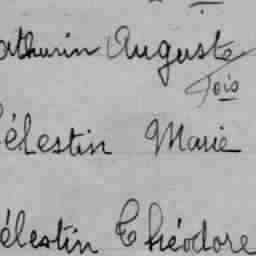 athurin Auguste
Célestin Marie
élestin Théodore